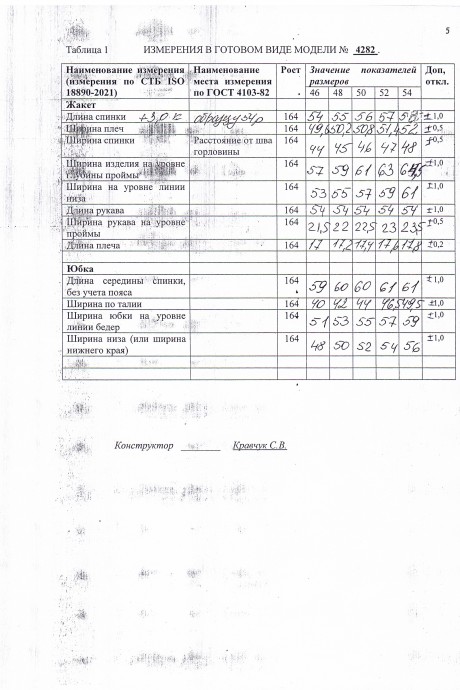 5
Таблица 1 ИЗМЕРЕНИЯ В ГОТОВОМ ВИДЕ МОДЕЛИ № 4282 .
Наименование измерения (измерения по СТБ ISO 18890-2021) Наименование места измерения по ГОСТ 4103-82 Рост Значение показателей размеров Доп, откл.
46 48 50 52 54
Жакет
Длина спинки +3,0 к образцу 164 54 55 56 57 58 ±1,0
Ширина плеч 164 49,6 50,2 50,8 51,4 52 ±0,5
Ширина спинки Расстояние от шва горловины 164 44 45 46 47 48 ±0,5
Ширина изделия на уровне глубины проймы 164 57 59 61 63 ±1,0
Ширина на уровне линии низа 164 53 55 57 59 61 ±1,0
Длина рукава 164 54 54 54 54 54 ±1,0
Ширина рукава на уровне проймы 164 21,5 22 22,5 23 23,5 ±0,5
Длина плеча 164 17 17,2 17,4 17,6 17,8 ±0,2
Юбка
Длина середины спинки, без учета пояса 164 59 60 60 61 61 ±1,0
Ширина по талии 164 40 42 44 46,5 49,5 ±1,0
Ширина юбки на уровне линии бедер 164 51 53 55 57 59 ±1,0
Ширина низа (или ширина нижнего края) 164 48 50 52 54 56 ±1,0
Конструктор ________ Кравчук С.В.